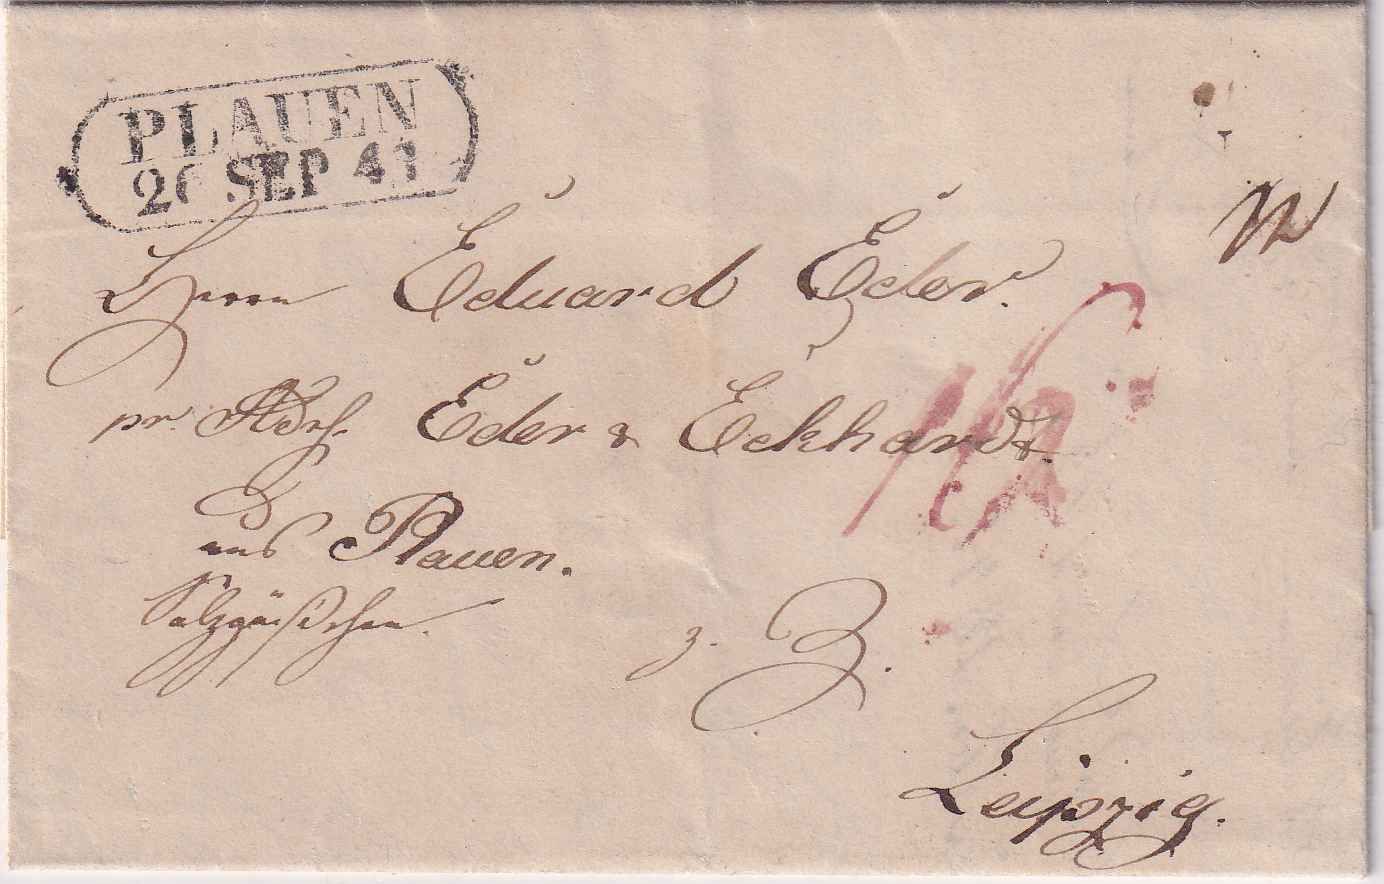 PLAUEN
SEP 41
Herrn Eduard Eder.
pr. Adr. Eder & Eckhardt.
aus Plauen.
Salzgäßchen.
z. Z.
Leipzig.